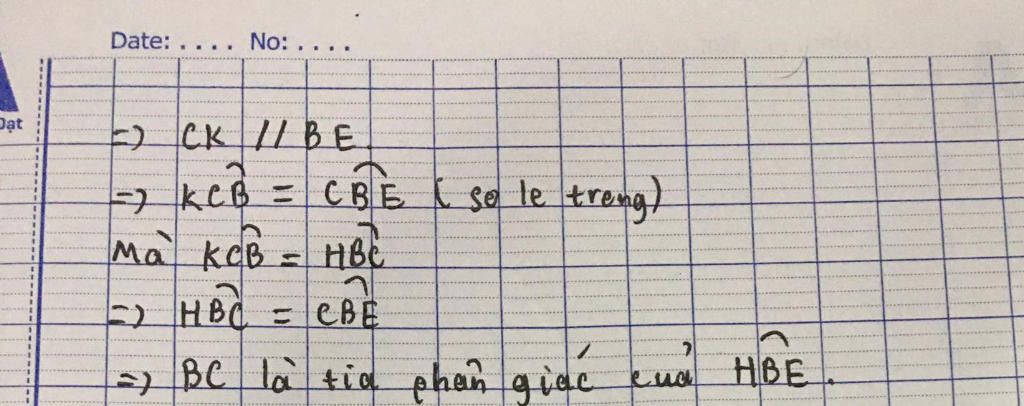 Date: .... No: ....
Đạt
=> CK // BE.
=> KCB̂ = CBÊ (so le trong)
Mà KCB̂ = HBĈ
=> HBĈ = CBÊ
=> BC là tia phân giác của HBÊ.